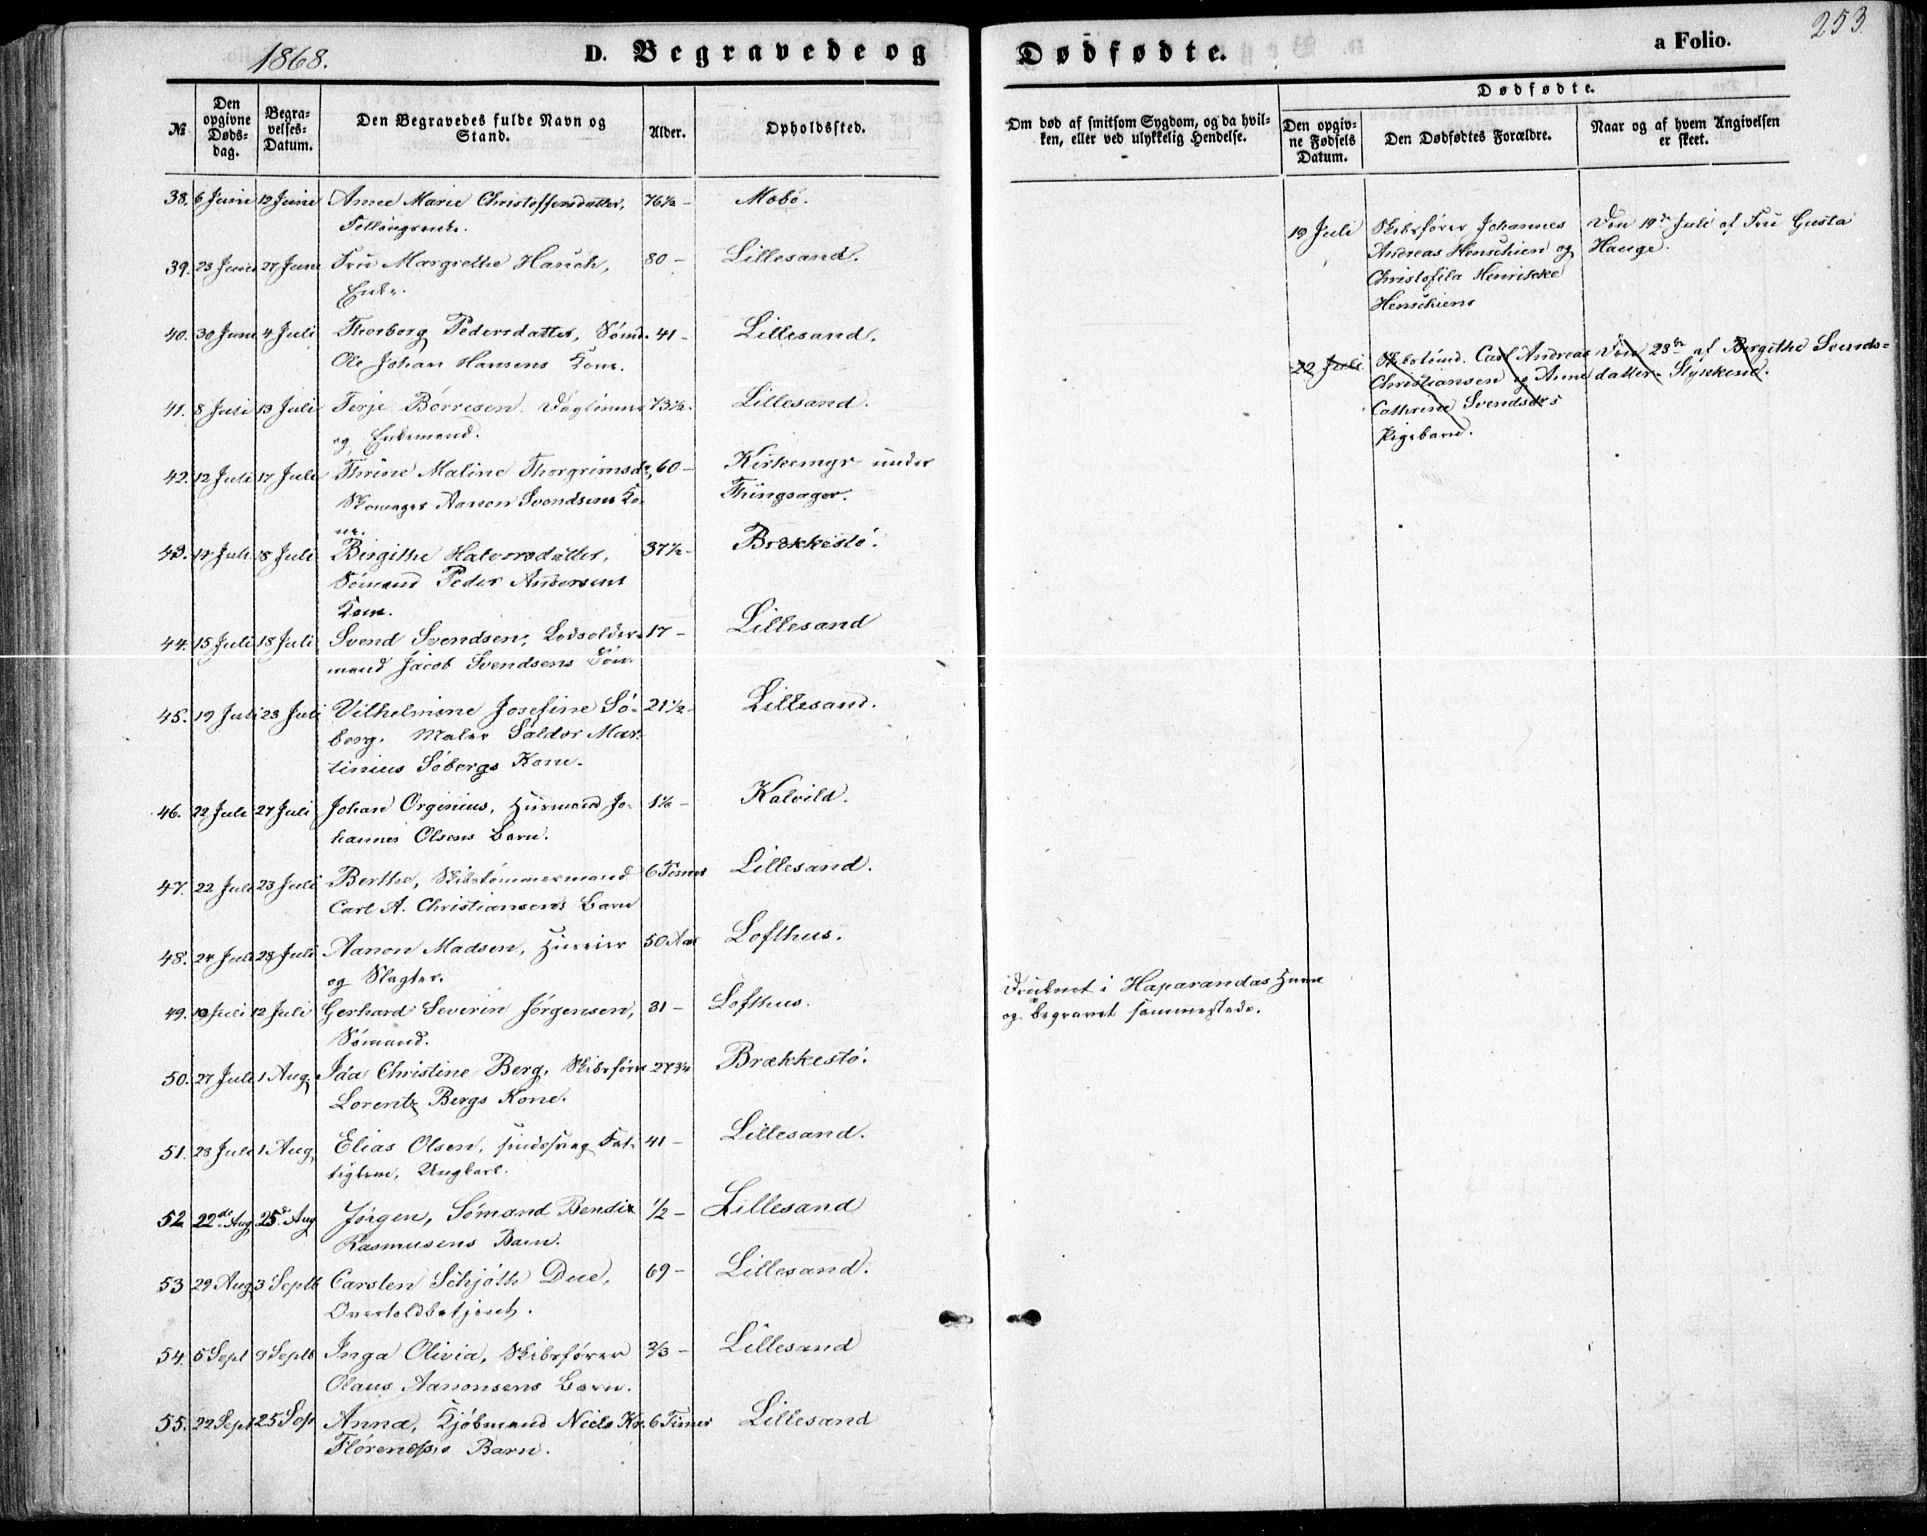 1868.
D. Begravede og
Dødfødte.
a Folio.
253.
№
Den opgivne Døds-dag.
Begra-velses-Datum.
Den Begravedes fulde Navn og Stand.
Alder.
Opholdssted.
Om død af smitsom Sygdom, og da hvil-ken, eller ved ulykkelig Hendelse.
Dødfødte.
Den opgiv-ne Fødsels Datum.
Den Dødfødtes Forældre.
Naar og af hvem Angivelsen er skeet.
38. 6 Juni 12 Juni Anne Marie Christoffersdatter, 76½ – Mobø.
39. 23 Juni 27 Juni Fru Margrethe Hauch, 80 – Lillesand.
Enke.
40. 30 Juni 4 Juli Thorborg Pedersdatter, Sømd. 41 – Lillesand.
Ole Johan Hansens Kone.
41. 8 Juli 13 Juli Terje Børresen, 73½. Lillesand.
og Enkemand.
42. 12 Juli 17 Juli Thrine Maline Thorgrimsdr, 60 – Kirkemyr under
Aanon Svendsens Ko- Thingsager.
ne.
43. 14 Juli 18 Juli Birgithe Halvorsdatter, 37½ – Brækkestø.
Sømand Peder Andersens
Kone.
44. 15 Juli 18 Juli Svend Svendsen, Lodsolder- 17 – Lillesand
mand Jacob Svendsens Søn.
45. 19 Juli 23 Juli Vilhelmine Josefine Sø- 21½ – Lillesand.
berg. Maler Saldor Mar-
tinius Søbergs Kone.
46. 22 Juli 27 Juli Johan Orginius, Husmand Jo- Kalvild.
hannes Olsens Barn.
47. 22 Juli 23 Juli Berthe, Skibstømmermand 6 Timer Lillesand.
Carl A. Christiansens Barn
48. 24 Juli 28 Juli Aanon Madsen, Huseier 50 Aar Lofthus.
og Slagter.
49. 10 Juli 12 Juli Gerhard Severin Jørgensen, 31 – Lofthus.
Sømand.
50. 27 Juli 1 Aug. Ida Christine Berg, Skibsfører 27¾ Brækkestø.
Lorentz Bergs Kone.
51. 28 Juli 1 Aug. Elias Olsen, sindssvag Fat- 41 – Lillesand.
tiglem, Ungkarl.
52 22de Aug 25d Aug Jørgen, Sømand Bendix ½ – Lillesand
Rasmusens Barn.
53 29 Aug. 3 Septb Carsten Schjøtth Due, 69 – Lillesand.
Overtoldbetjent.
54. 5 Sept 9 Septb Inga Olivia, Skibsfører ⅔ – Lillesand
Olaus Aanonsens Barn.
55. 22 Sept 25 Sep Anna, Kjøbmand Niels Kr. 6 Timer Lillesand
Florenæss Barn.
Druknet i Haparandas Havn
og begravet sammesteds.
19 Juli Skibsfører Johannes
Andreas Henschien og
Christofila Henrikke
Henschiens
Den 19de Juli af Fru Gusta
Hauge.
22 Juli Skibstømd. Carl Andreas
Christiansen og Anne
Cathrine Svendsdrs
Pigebarn.
Den 23de af Birgithe Svends-
datter Styrkend.